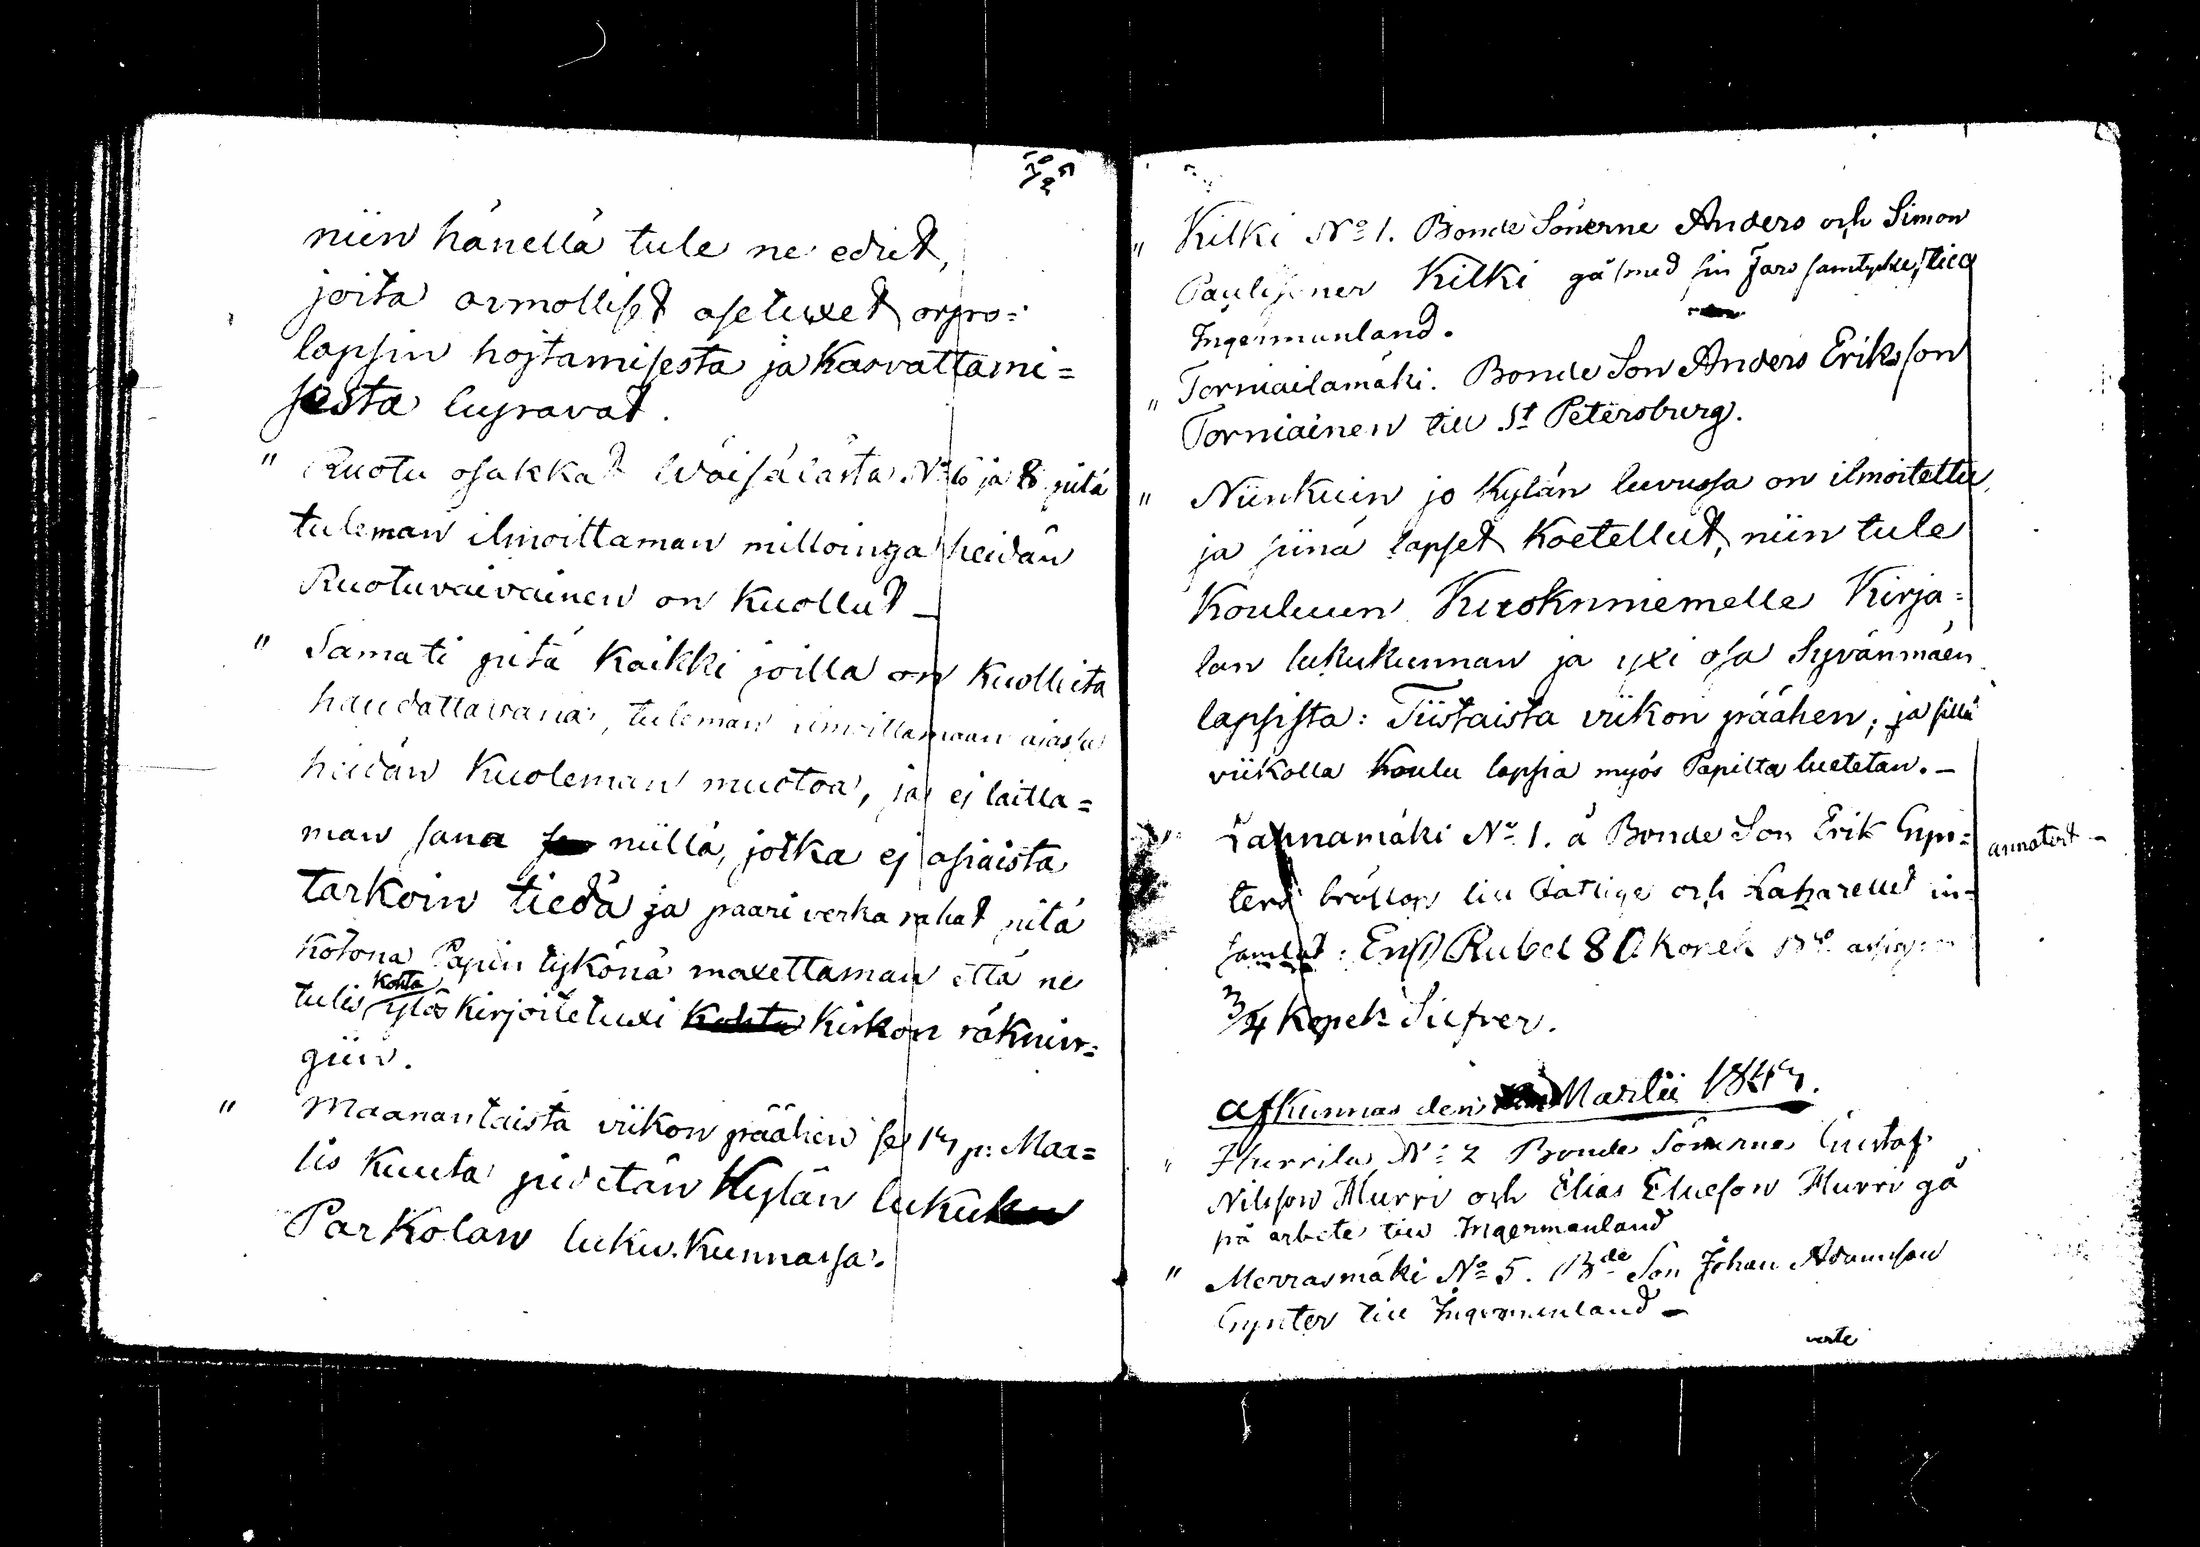 niin hänellä tule ne edut,
joita armolliset asetuxet orpo=
lapsin hojtamisesta ja Kasvattami=
sesta lupavat.
" Ruotu osakkat Wäisälästä No 6 ja 8 pitä
tuleman ilmoittaman milloinga heidän
Ruotuvaivainen on Kuollut —
" Samati pitä Kaikki joilla on Kuolluita
haudattavana, tuleman ilmoittamaan
heidän Kuoleman muotoa, ja ej laitta=
man sana niillä, jotka ej asiaista
tarkoin tiedä ja paari verka rahat pitä
Kotona Papin tykönä maxettaman että ne
tulis Kohta ylös Kirjoitetuxi Kohta Kirkon räknin=
giin.
" Maanantaista viikon päähen se 17 p: Maa=
lis Kuuta pidetän Kylän luku
Parkolan luku Kunnassa.
" Kilki No 1. Bonde Sönerne Anders och Simon
Paulssöner Kilki gå med sin Fars samtycke, till
Ingermanland.
" Torniailamäki. Bonde Son Anders Eriksson
Torniainen till St Petersburg.
" Niinkuin jo Kylän luvussa on ilmoitettu
ja siinä lapset Koetellut, niin tule
Kouluun Kirja=
lan lukukunnan ja yxi osa Syvänmäen
lapsista: Tiistaista viikon päähen; ja sillä
viikolla Koulu lapsia myös Papilta luetetan. —
" Lahnamäki No 1. å Bonde Son Erik Gyn=
ters bröllop till Fattige och Lazarettet in=
samlat: En Rubel 80 Kopek
3/4 Kopek Silfver.
annoterat —
afkunnas den Martii 1847.
" Hurrila No 2 Bonde Sönerne Gustaf
Nilsson Hurri och Elias Eliesson Hurri gå
på arbete till Ingermanland
" Merrasmäki No 5. Bde Son Johan Adamsson
Gynter till Ingermanland —
verte